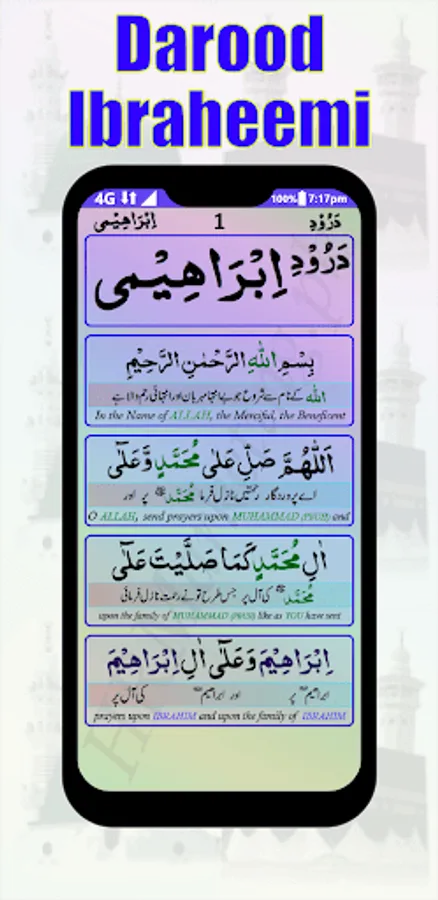 Darood
Ibraheemi
4G 100% 7:17pm
دَرُوْدِ 1 اِبْرَاھِیْمِی
دَرُوْدِ اِبْرَاھِیْمِی
بِسْمِ اللّٰهِ الرَّحْمٰنِ الرَّحِيْمِ
اللہ کے نام سے شروع جو بے انتہا مہربان اور انتہائی رحم والا ہے
In the Name of ALLAH, the Merciful, the Beneficent
اَللّٰهُمَّ صَلِّ عَلٰى مُحَمَّدٍ وَّعَلٰٓى
اے پروردگار رحمتیں نازل فرما مُحَمَّدﷺ پر اور
O ALLAH, send prayers upon MUHAMMAD (PBUH) and
اٰلِ مُحَمَّدٍ كَمَا صَلَّيْتَ عَلٰٓى
مُحَمَّدﷺ کی آل پر جس طرح تو نے رحمت نازل فرمائی
upon the family of MUHAMMAD (PBUH) like as YOU have sent
اِبْرَاهِيْمَ وَعَلٰٓى اٰلِ اِبْرَاهِيْمَ
ابراھیم پر اور ابراھیم کی آل پر
prayers upon IBRAHIM and upon the family of IBRAHIM